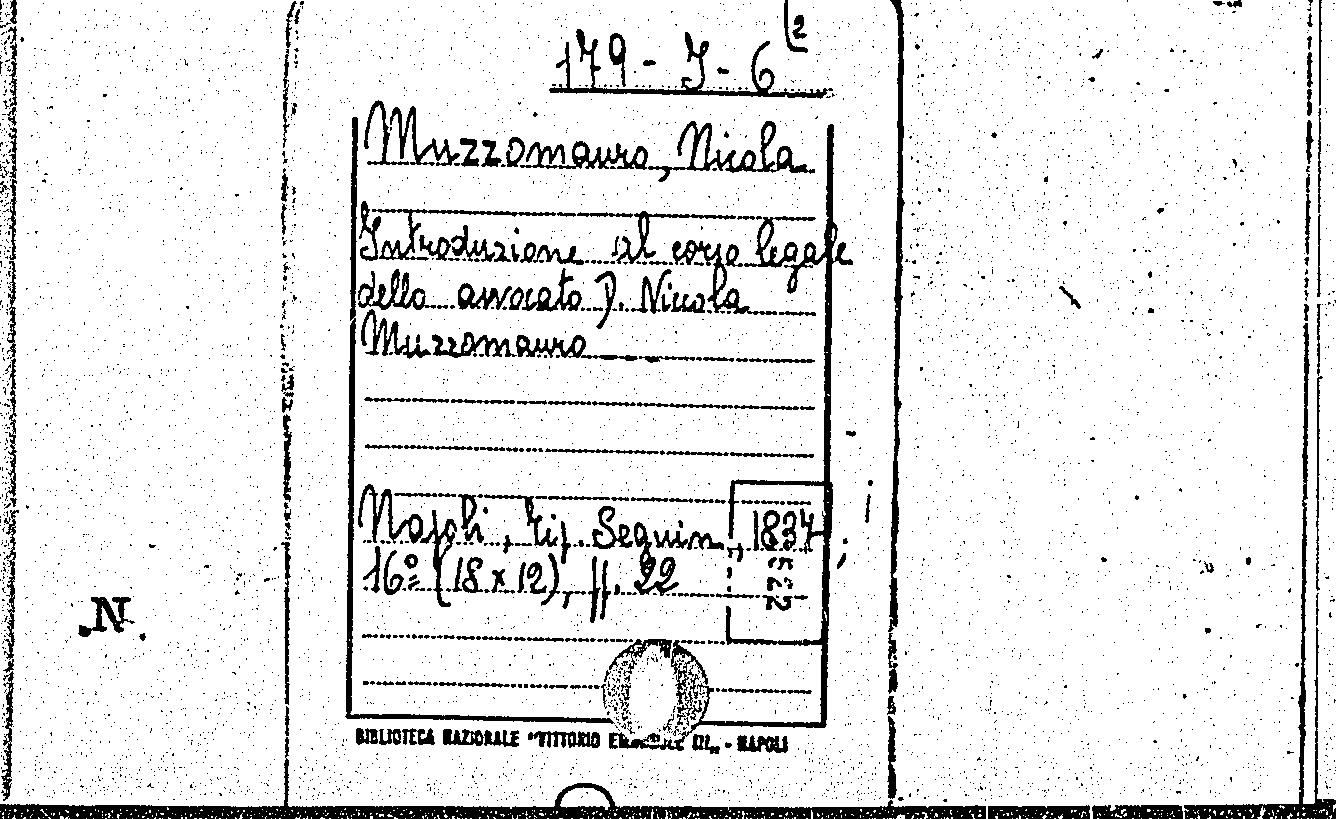 179 - J - 6 (2
Muzzomauro, Nicola
Introduzione al corso legale
dello avvocato D. Nicola
Muzzomauro
Napoli, Tip. Seguin, 1834;
16º (18 x 12), pp. 22
522
N.
BIBLIOTECA NAZIONALE "VITTORIO EMANUELE III„ - NAPOLI